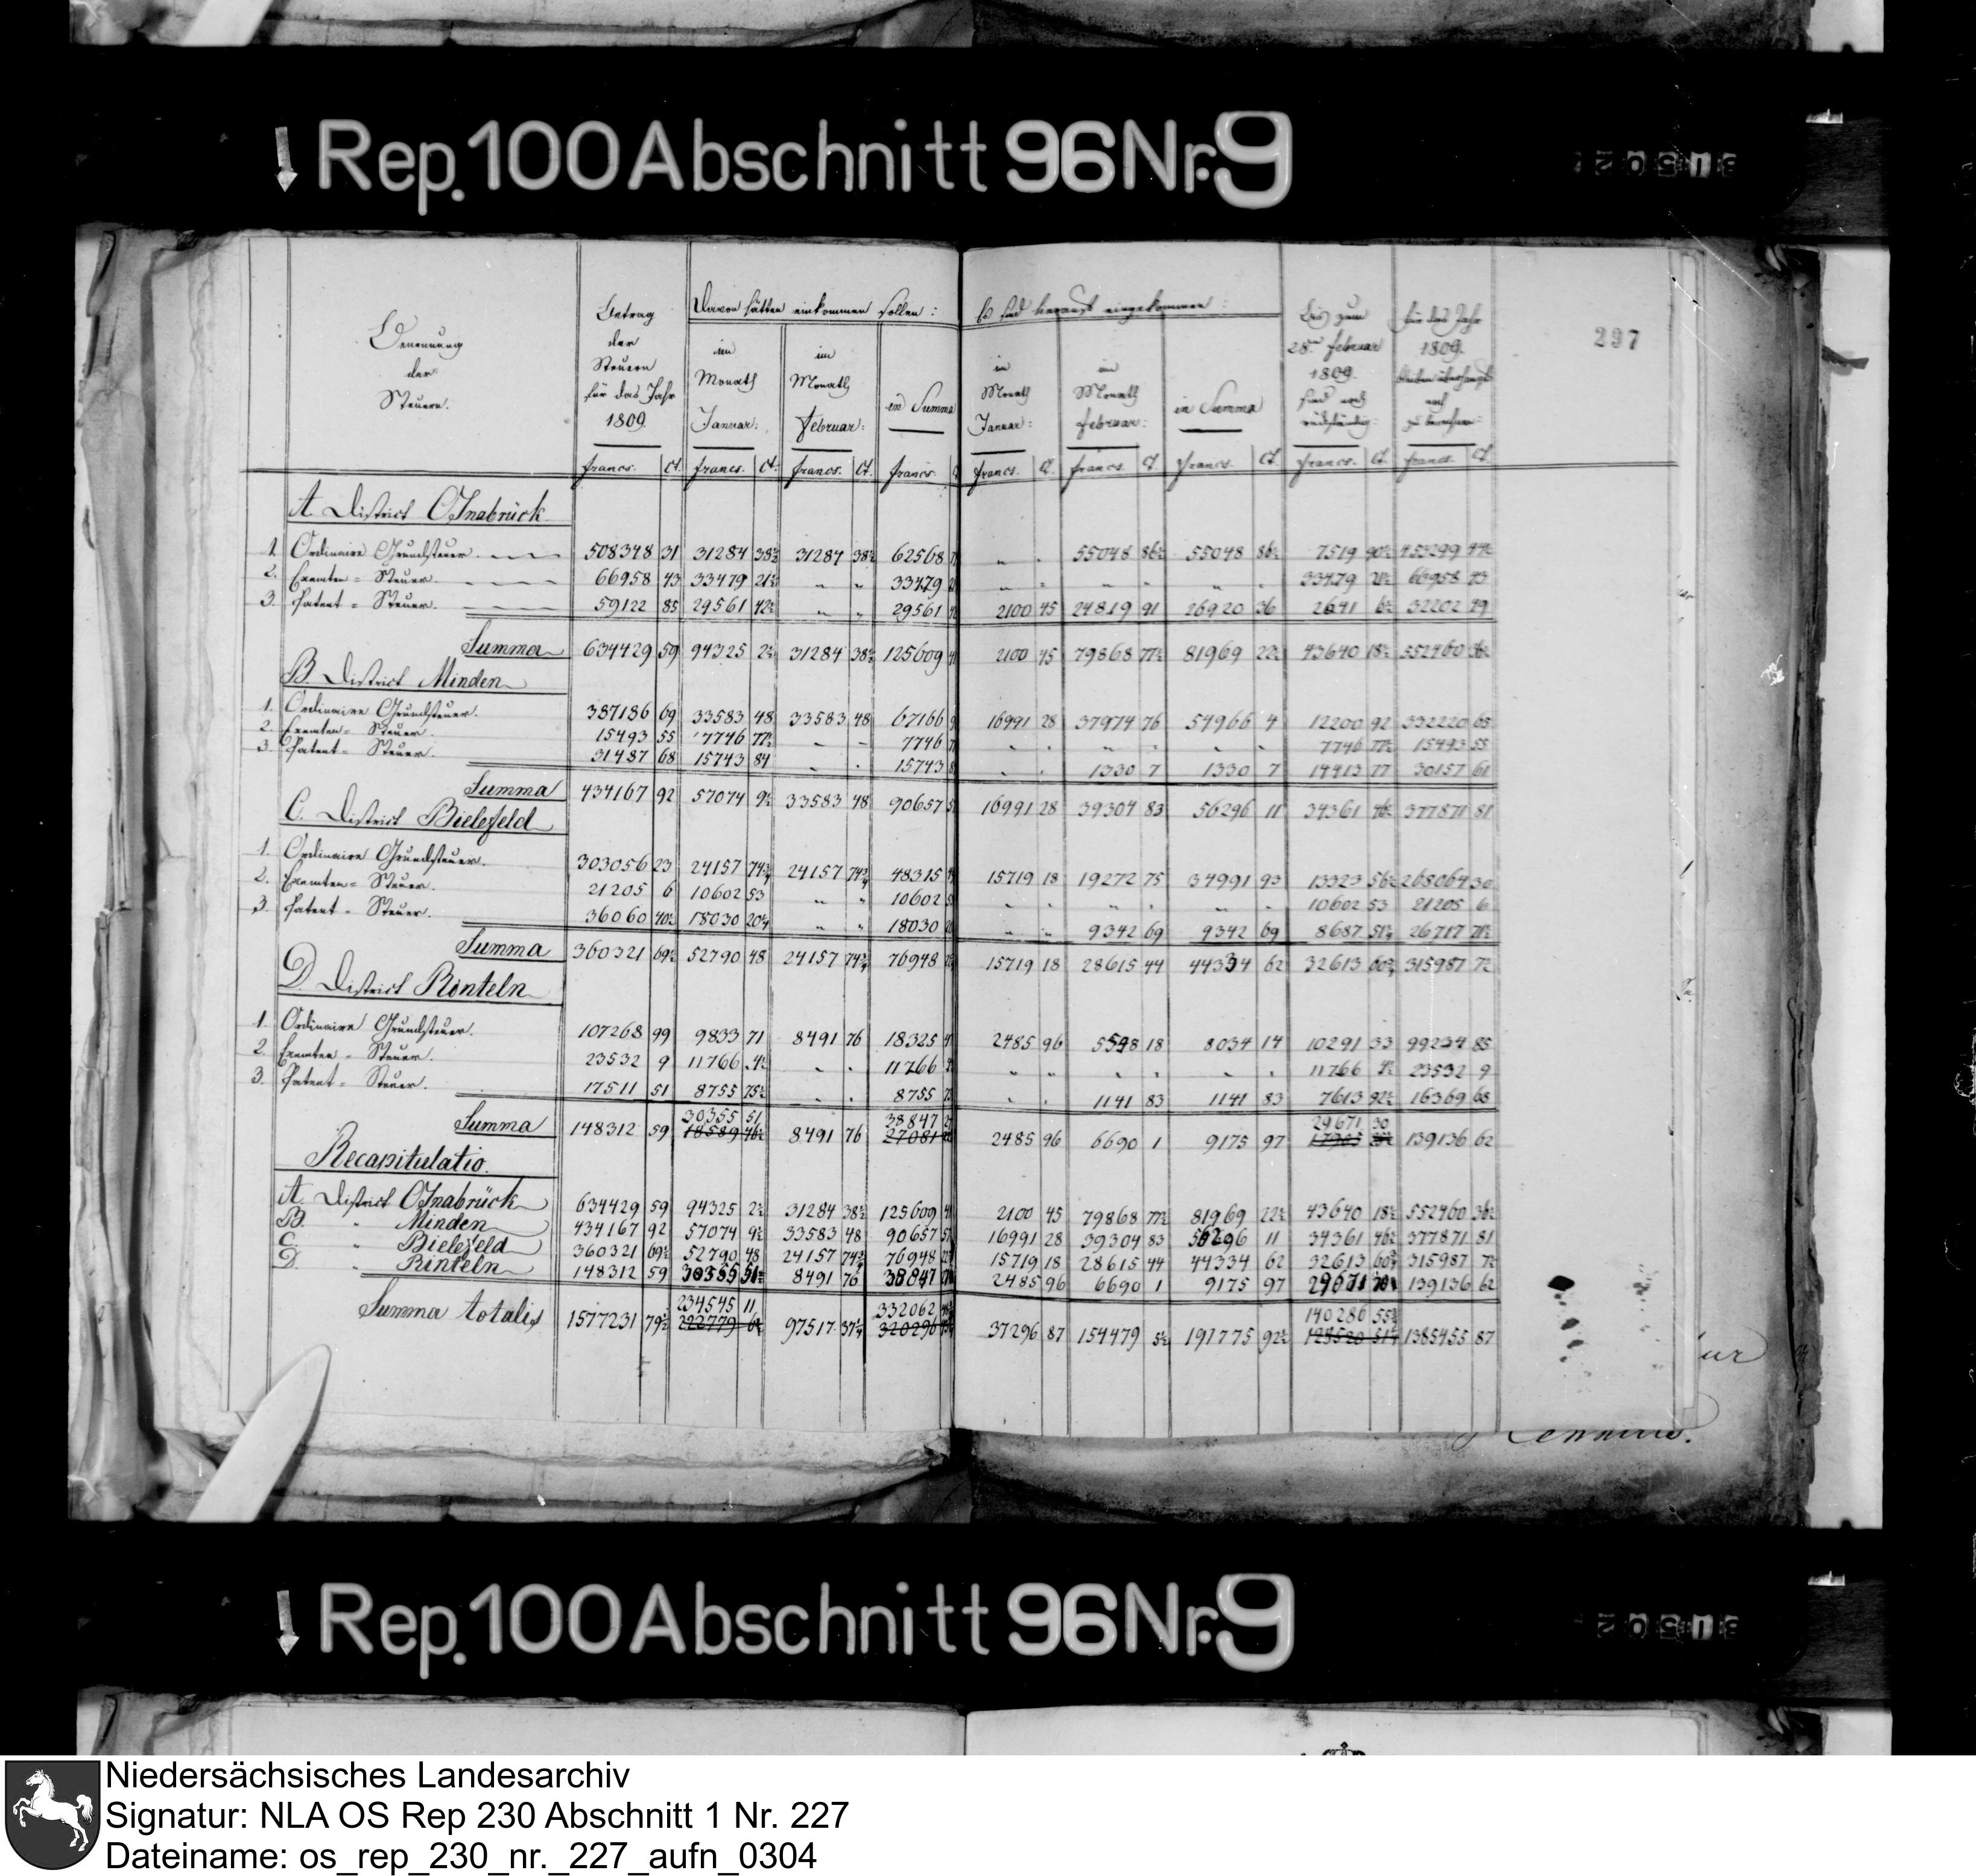 Rep. 100 Abschnitt 96 Nr. 9
297
Benennung der Steuern.
Betrag der Steuern für das Jahr 1809
Davon hätten einkommen sollen:
im Monath Januar:
im Monath Februar:
in Summa
Es sind hierauf eingekommen:
im Monath Januar:
im Monath Februar:
in Summa
Bis zum 28ten Februar 1809. sind noch rückständig:
für das Jahr 1809. bleiben überhaupt noch zu berechnen:
francs. Ct. francs. Ct. francs. Ct. francs. francs. Ct. francs. Ct. francs. Ct. francs. Ct. francs. Ct.
A. District Osnabrück
1. Ordinaire Grundsteuer. 508348 31 31284 38½ 31284 38½ 62568 " " 55048 86½ 55048 86½ 7519 90½ 453299 44½
2. Exemten = Steuer. 66958 43 33479 21½ " " 33479 " " " " " " 33479 21½ 66958 43
3. Patent = Steuer. 59122 85 29561 42½ " " 29561 2100 45 24819 91 26920 36 2641 6½ 32202 49
Summa 634429 59 94325 2½ 31284 38½ 125609 2100 45 79868 77½ 81969 22½ 43640 18½ 552460 36½
B. District Minden
1. Ordinaire Grundsteuer. 387186 69 33583 48 33583 48 67166 16991 28 37974 76 54966 4 12200 92 332220 65
2. Exemten = Steuer. 15493 55 7746 77½ " " 7746 " " " " " " 7746 77½ 15493 55
3. Patent = Steuer. 31487 68 15743 84 " " 15743 " " 1330 7 1330 7 14413 77 30157 61
Summa 434167 92 57074 9½ 33583 48 90657 16991 28 39304 83 56296 11 34361 46½ 377871 81
C. District Bielefeld
1. Ordinaire Grundsteuer. 303056 23 24157 74¾ 24157 74¾ 48315 15719 18 19272 75 34991 93 13323 56½ 268064 30
2. Exemten = Steuer. 21205 6 10602 53 " " 10602 " " " " " " 10602 53 21205 6
3. Patent = Steuer. 36060 40½ 18030 20¼ " " 18030 " " 9342 69 9342 69 8687 51¼ 26717 71½
Summa 360321 69½ 52790 48 24157 74¾ 76948 15719 18 28615 44 44334 62 32613 60¾ 315987 7½
D. District Rinteln
1. Ordinaire Grundsteuer. 107268 99 9833 71 8491 76 18325 2485 96 5548 18 8034 14 10291 33 99234 85
2. Exemten = Steuer. 23532 9 11766 4½ " " 11766 " " " " " " 11766 4½ 23532 9
3. Patent = Steuer. 17511 51 8755 75½ " " 8755 " " 1141 83 1141 83 7613 92½ 16369 68
30355 51 38847 29671 30
Summa 148312 59 18589 46½ 8491 76 27081 2485 96 6690 1 9175 97 139136 62
Recapitulatio.
A. District Osnabrück 634429 59 94325 2½ 31284 38½ 125609 2100 45 79868 77½ 81969 22½ 43640 18½ 552460 36½
B. " Minden 434167 92 57074 9½ 33583 48 90657 16991 28 39304 83 56296 11 34361 46½ 377871 81
C. " Bielefeld 360321 69½ 52790 48 24157 74¾ 76948 15719 18 28615 44 44334 62 32613 60¾ 315987 7½
D. " Rinteln 148312 59 30355 51 8491 76 38847 2485 96 6690 1 9175 97 29671 30 139136 62
234545 11 332062 140286 55¾
Summa totalis 1577231 79½ 222779 6½ 97517 37¼ 320296 37296 87 154479 5½ 191775 92½ 128520 51¼ 1385455 87
Rep. 100 Abschnitt 96 Nr. 9
Niedersächsisches Landesarchiv
Signatur: NLA OS Rep 230 Abschnitt 1 Nr. 227
Dateiname: os_rep_230_nr._227_aufn_0304